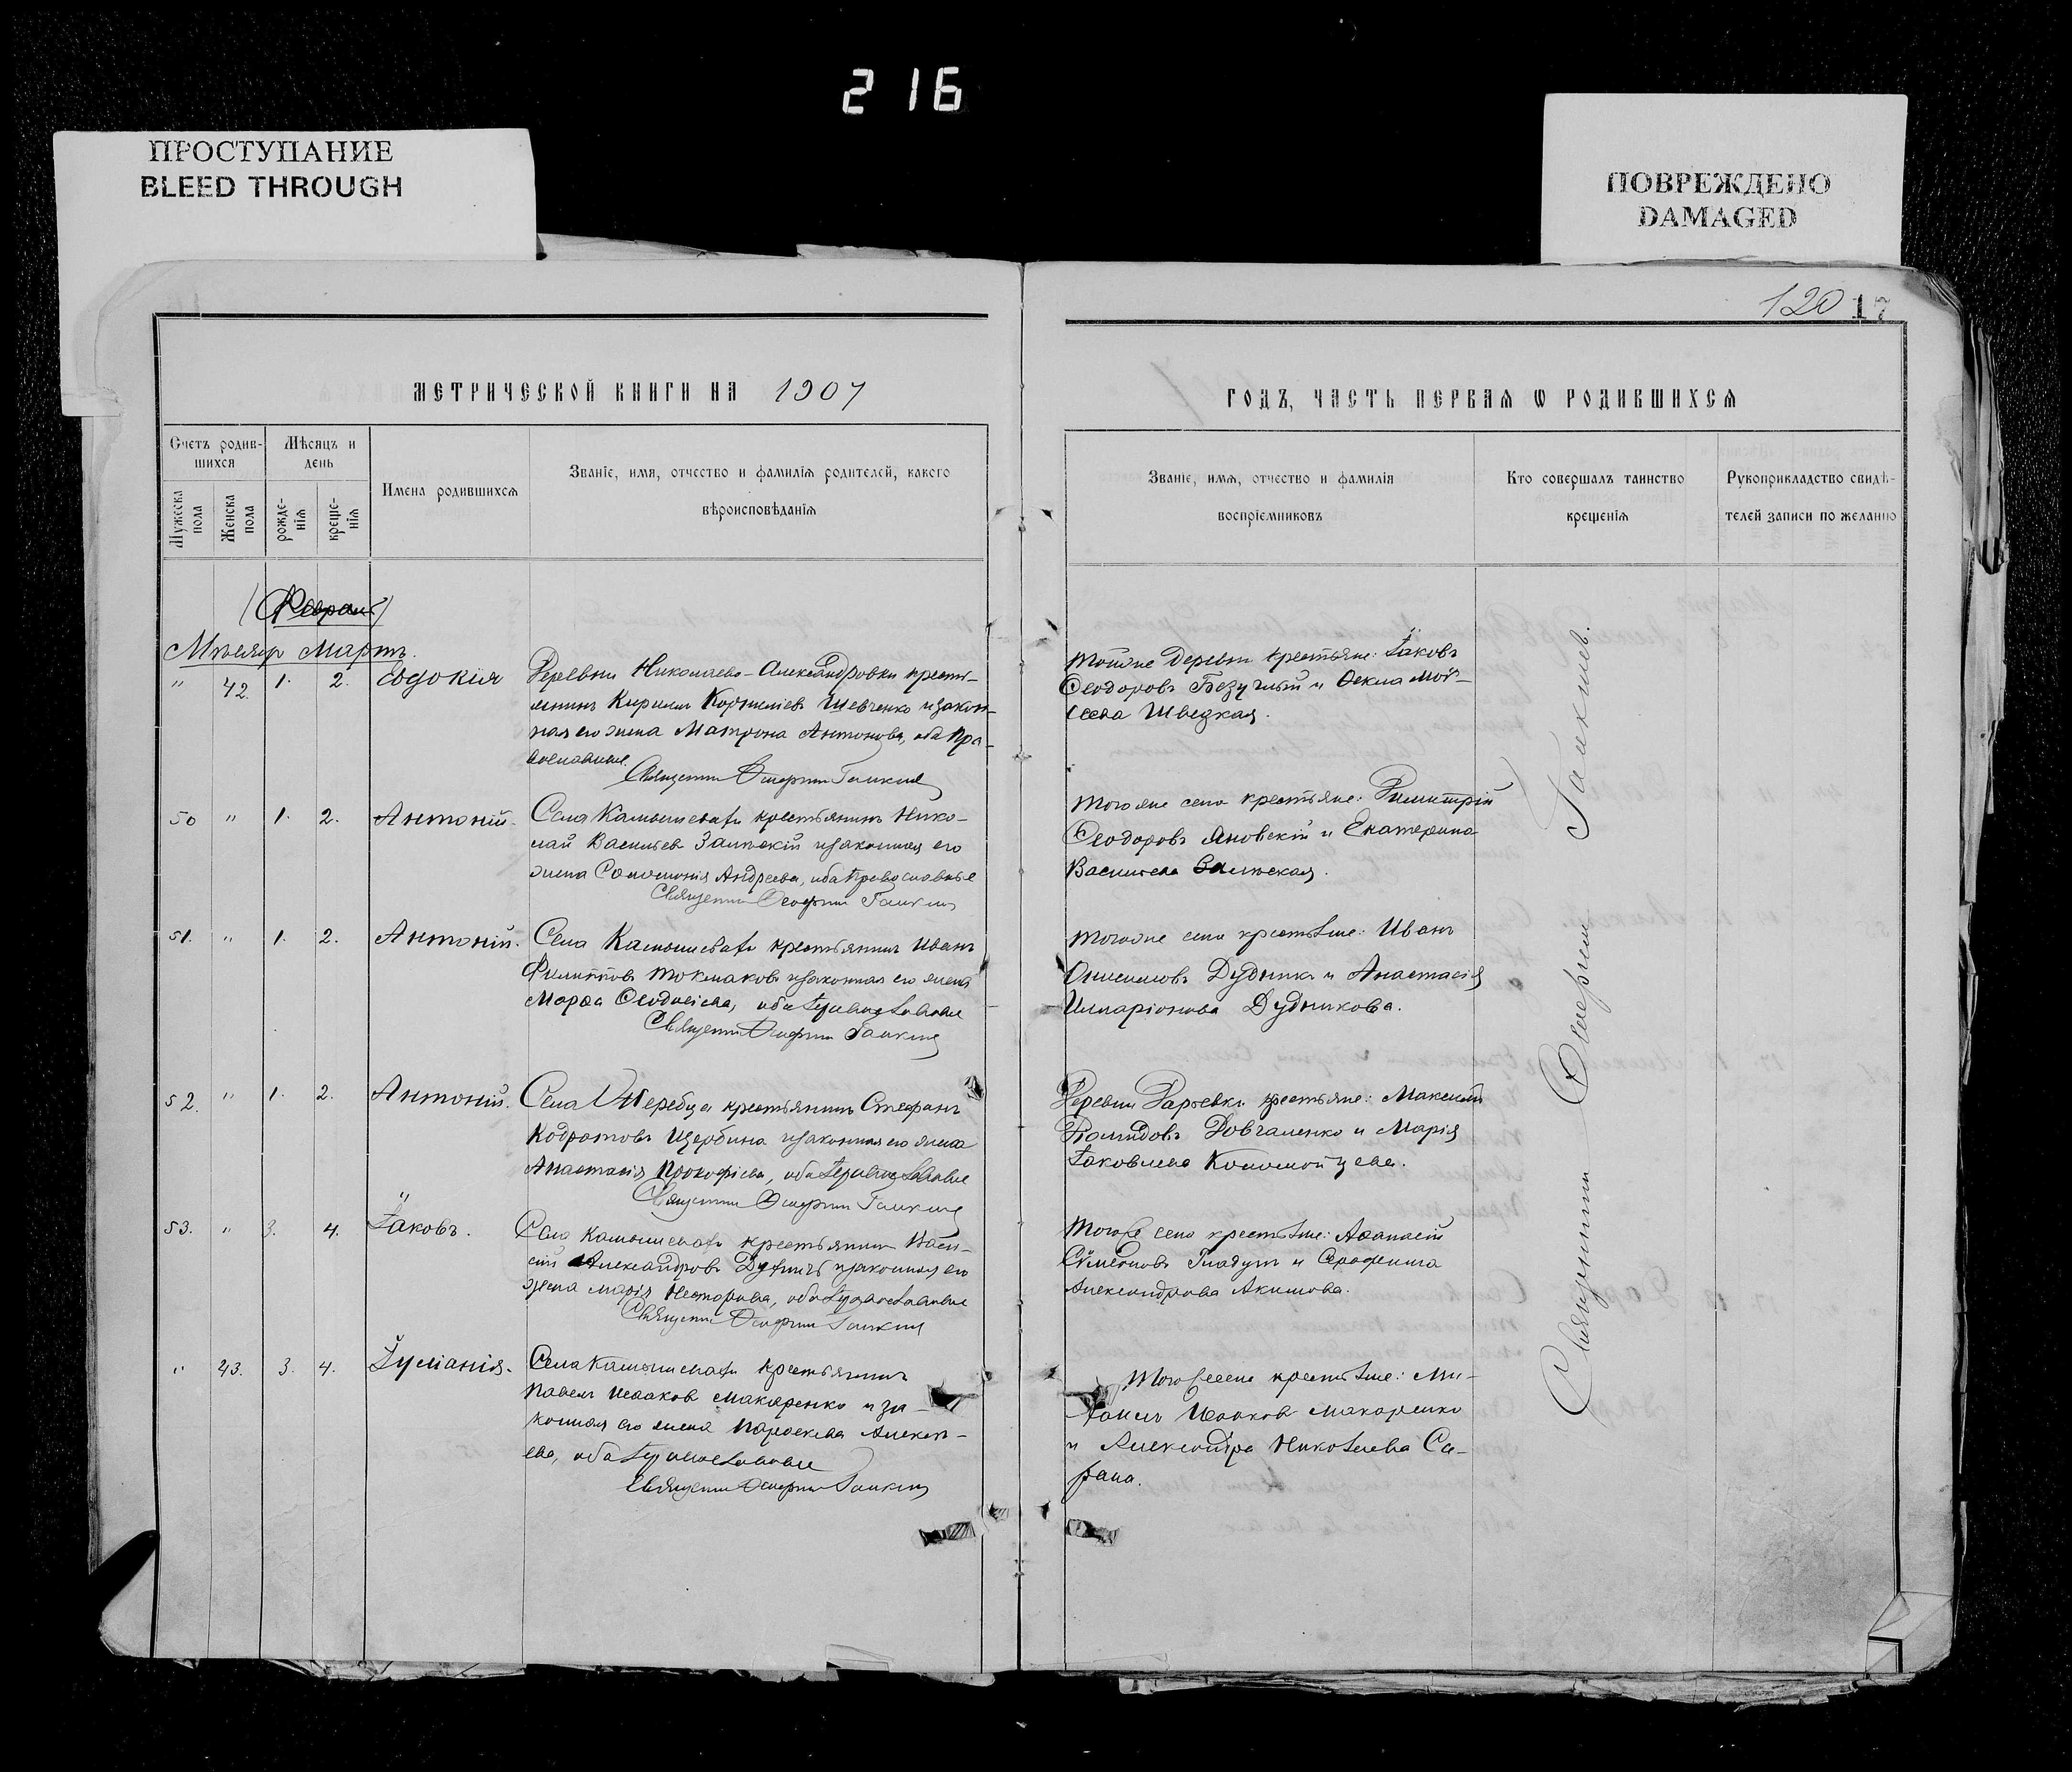 216
ПРОСТУПАНИЕ
BLEED THROUGH
ПОВРЕЖДЕНО
DAMAGED
120 17
МЕТРИЧЕСКОЙ КНИГИ НА 1907
ГОДЪ, ЧАСТЬ ПЕРВАЯ Ѡ РОДИВШИХСЯ
Счетъ родив-
шихся
Мѣсяцъ и
день
Мужеска
пола
Женска
пола
рожде-
нія
креще-
нія
Имена родившихся
Званіе, имя, отчество и фамилія родителей, какого
вѣроисповѣданія
Званіе, имя, отчество и фамилія
воспріемниковъ
Кто совершалъ таинство
крещенія
Рукоприкладство свидѣ-
телей записи по желанію
Мѣсяцъ Мартъ.
" 42. 1. 2. Евдокія
Деревни Николаево-Александровки кресть-
янинъ Кириллъ Корниліевъ Шевченко и закон-
ная его жена Матрона Антонова, оба пра-
вославные.
Священникъ Галкинъ
Тойже деревни крестьяне: Іаковъ
Ѳеодоровъ Безуглый и Ѳекла Мой-
сеева Шведкая.
50 " 1. 2. Антоній.
Села Камышеватки крестьянинъ Нико-
лай Васильевъ и законная его
жена Соломонія Андреева, оба православные
Священникъ Галкинъ
Тогоже села крестьяне: Димитрій
Ѳеодоровъ Яновскій и Екатерина
Васильева
51. " 1. 2. Антоній.
Села Камышеватки крестьянинъ Иванъ
Филипповъ Токмаковъ и законная его жена
Марѳа Ѳеодосіева, оба православные
Священникъ Галкинъ
Тогоже села крестьяне: Иванъ
Дудника и Анастасія
Иларіонова Дудникова.
52. " 1. 2. Антоній.
Села Жеребца крестьянинъ Стефанъ
Кодратовъ Щербина и законная его жена
Анастасія Прокофіева, оба православные
Священникъ Галкинъ
Деревни Дарьевки крестьяне: Максимъ
Довгаленко и Марія
Іаковлева Коломойцева.
53. " 3. 4. Іаковъ.
Села Камышеватки крестьянинъ Васи-
лій Александровъ и законная его
жена Марія Несторова, оба православные
Священникъ Галкинъ
Тогоже села крестьяне: Аѳанасій
Сѵмеоновъ Гладунъ и Серафима
Александрова Акимова.
" 43. 3. 4. Іуліанія.
Села Камышеватки крестьянинъ
Павелъ Исааковъ Макаренко и за-
конная его жена Параскева Алексѣ-
ева, оба православные
Священникъ Галкинъ
Тогоже села крестьяне: Ми-
хаилъ Исааковъ Макаренко
и Александра Николаева Са-
рана.
Священникъ Галкинъ.